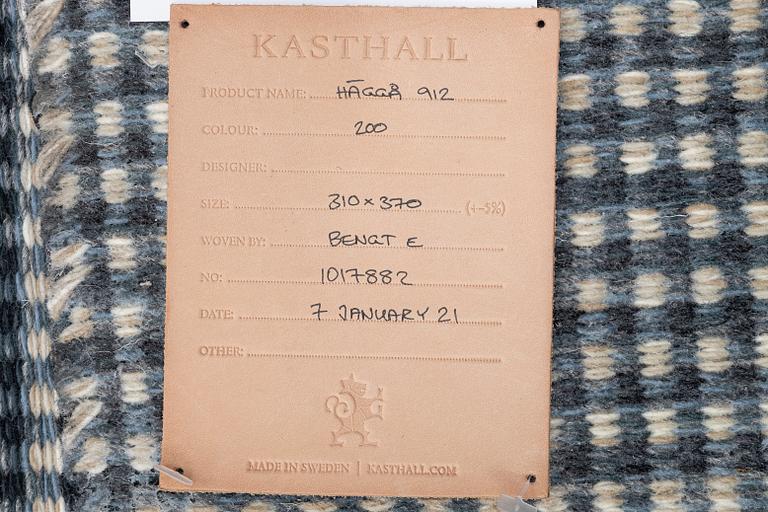 KASTHALL
PRODUCT NAME: HÄGGÅ 912
COLOUR: 200
DESIGNER:
SIZE: 310 x 370 (+-5%)
WOVEN BY: BENGT E
NO: 1017882
DATE: 7 JANUARY 21
OTHER:
MADE IN SWEDEN | KASTHALL.COM